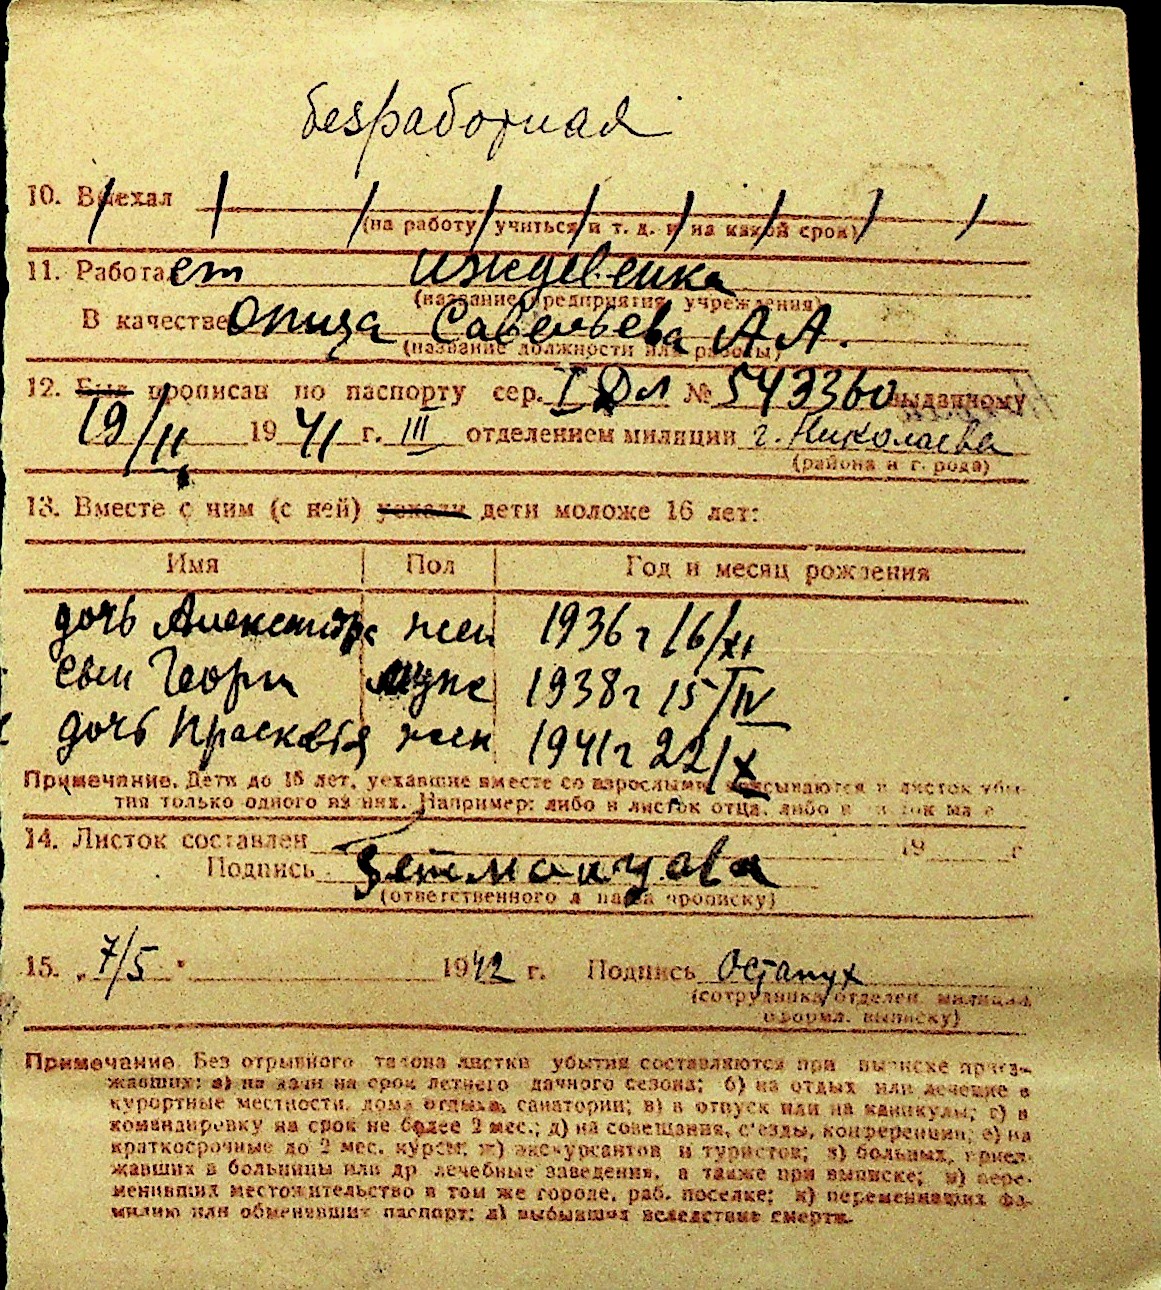 безработная
10. Выехал
(на работу учиться и т. д. и на какой срок)
11. Работает иждевенка
(название предприятия, учреждения)
В качестве отца Савельева А А.
(название должности или работы)
12. Был прописан по паспорту сер. I Дл № 543360 выданному
19/II 1941 г. III отделением милиции г. Николаева
(района и города)
13. Вместе с ним (с ней) уехали дети моложе 16 лет:
Имя Пол Год и месяц рождения
дочь Александра жен 1936 г 16/XI
сын Георги муж 1938 г 15/IV
дочь Прасковья жен 1941 г 22/X
Примечание. Дети до 16 лет, уехавшие вместе со взрослыми, вписываются в листок убы-
тия только одного из них. Например: либо в листок отца, либо в листок ма
14. Листок составлен 19 г
Подпись
(ответственного за прописку)
15. „7/5 " 1942 г. Подпись Остапух
(сотрудника отделен. милиции,
оформл. выписку)
Примечание. Без отрывного талона листки убытия составляются при выписке приез-
жавших: а) на дачи на срок летнего дачного сезона; б) на отдых или лечение в
курортные местности, дома отдыха, санатории; в) в отпуск или на каникулы; г) в
командировку на срок не более 2 мес.; д) на совещания, с'езды, конференции; е) на
краткосрочные до 2 мес. курсы; ж) экскурсантов и туристов; з) больных, приез-
жавших в больницы или др лечебные заведения, а также при выписке; и) пере-
менивших местожительство в том же городе, раб. поселке; к) переменивших фа-
милию или обменявших паспорт; л) выбывших вследствие смерти.